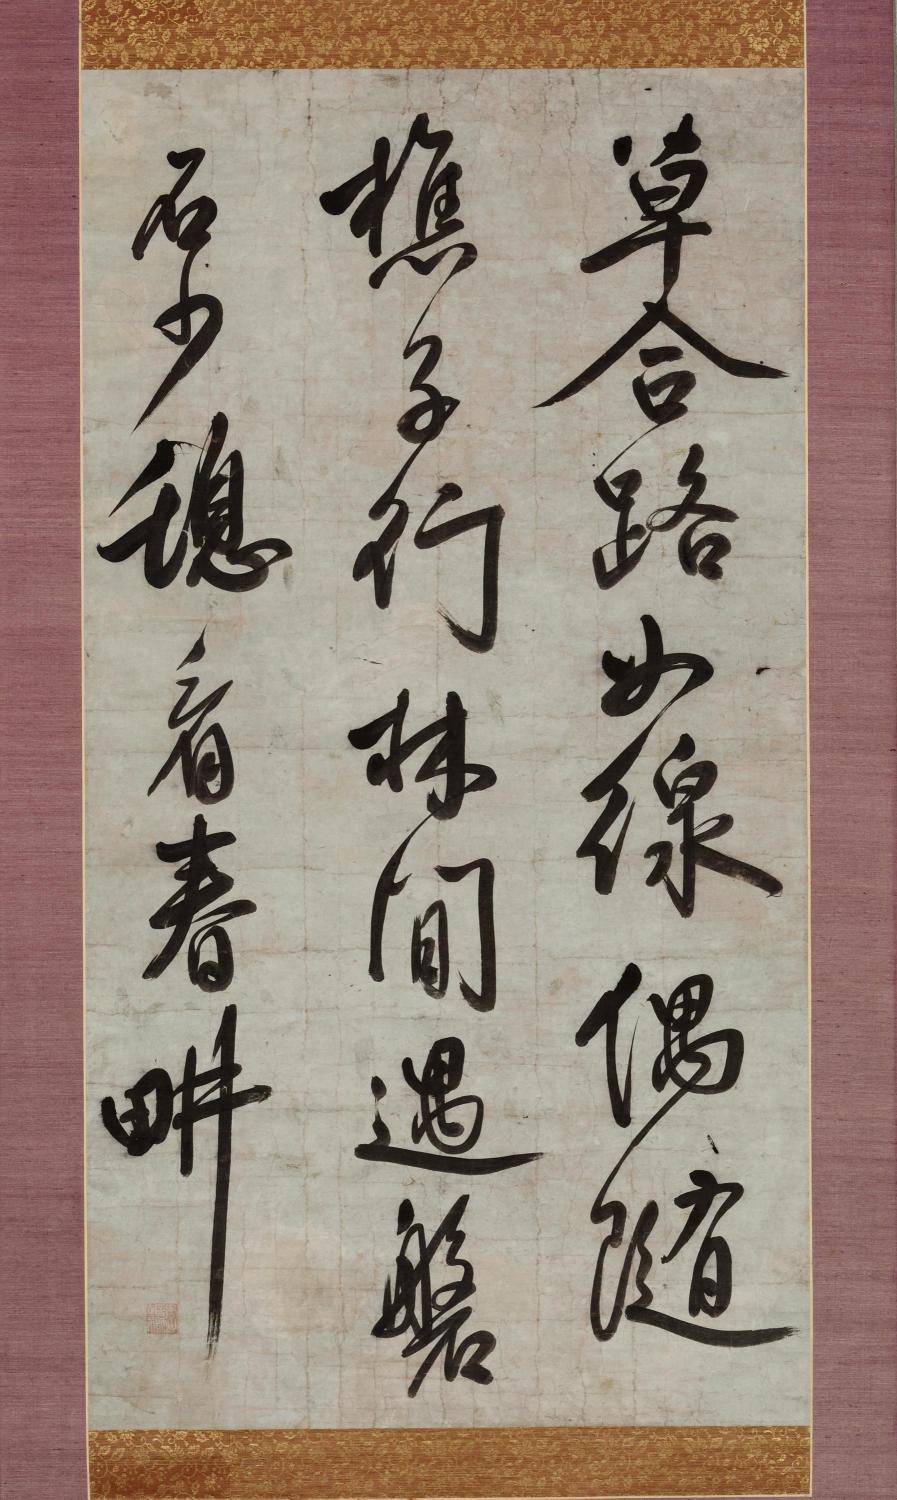 草合路如線偶隨
樵子行林間遇盤
石少憩看春畊